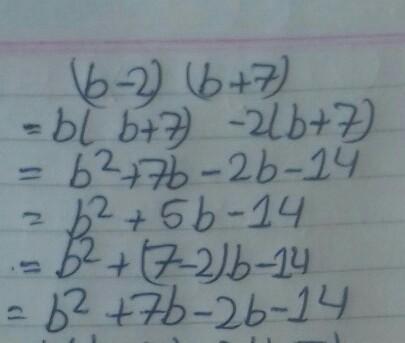 (b-2) (b+7)
= b( b+7) -2(b+7)
= b²+7b-2b-14
= b² + 5b-14
= b² + (7-2)b-14
= b² +7b-2b-14